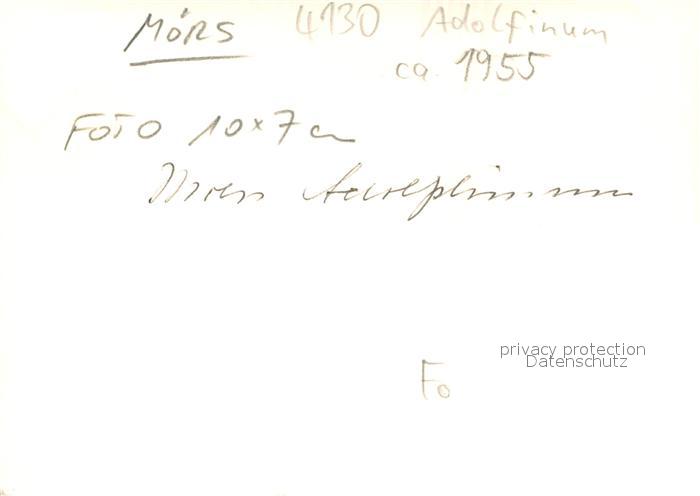 MÖRS 4130 Adolfinum
ca. 1955
FOTO 10x7 cm
Moers Adolphinum
privacy protection
Datenschutz
Fo